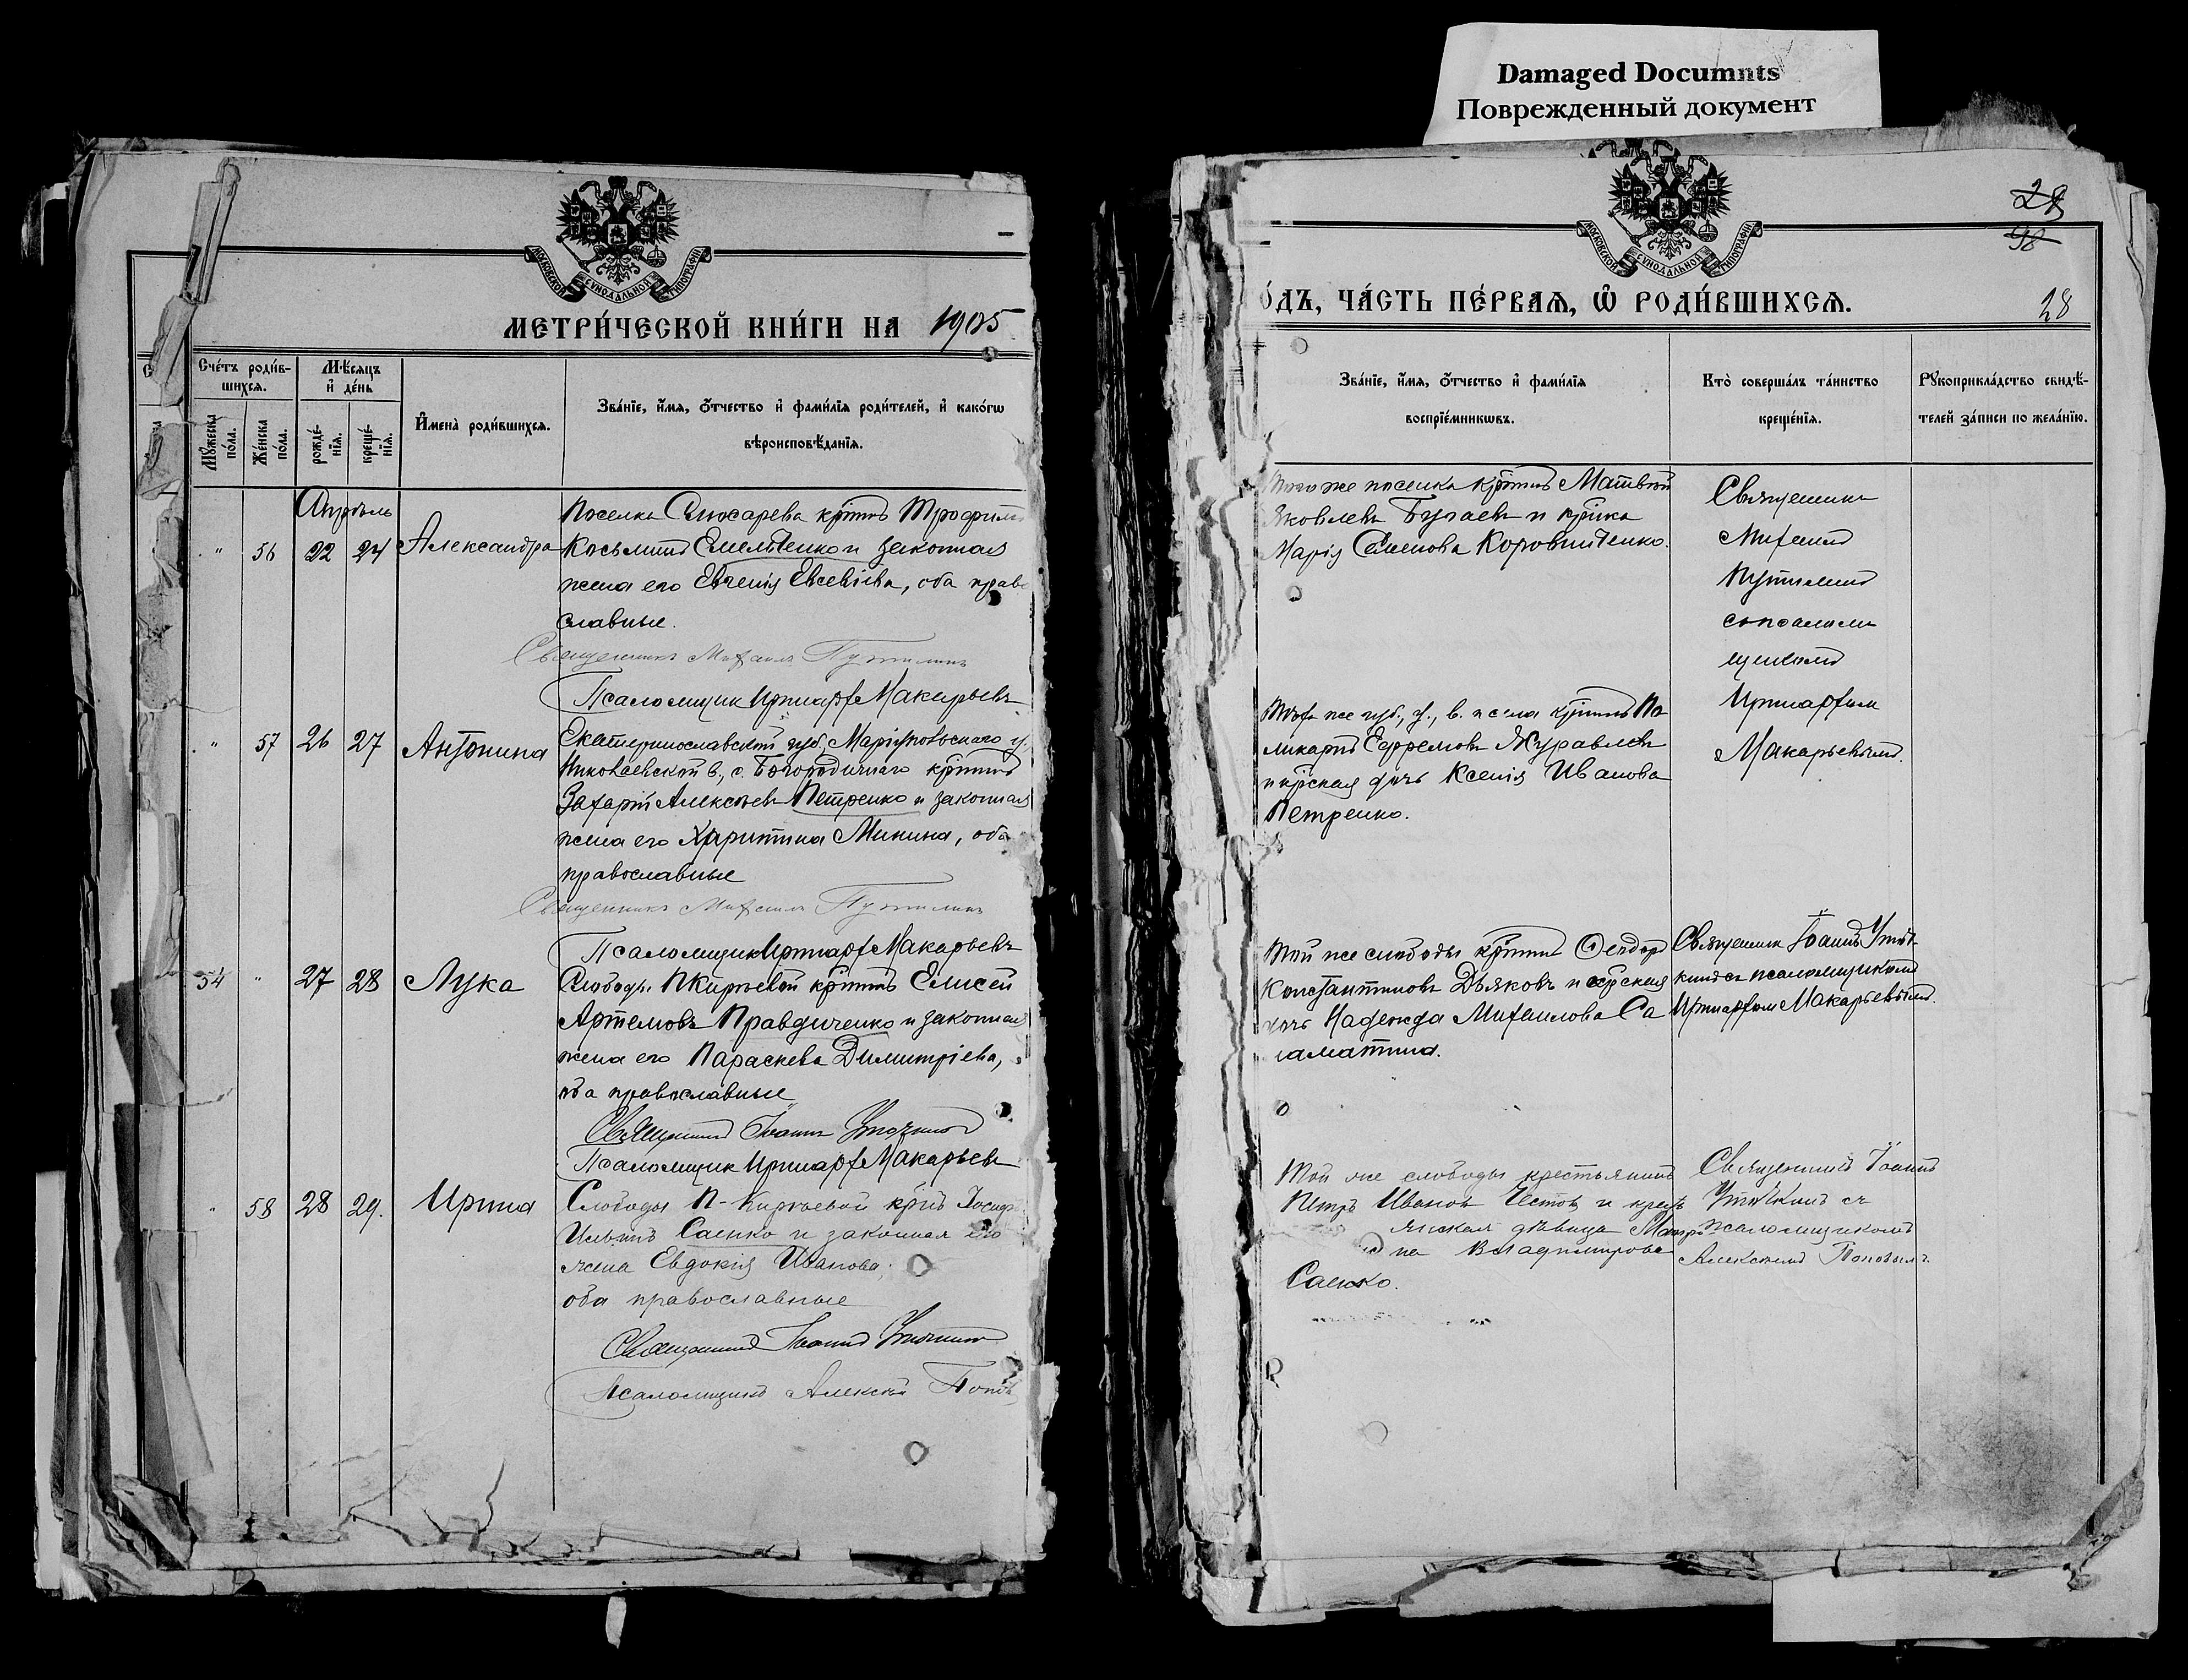 Damaged Documnts
Поврежденный документ
МОСКОВСКОЙ СѴНОДАЛЬНОЙ ТИПОГРАФІИ
МЕТРИ́ЧЕСКОЙ КНИ́ГИ НА 1905
Сче́тъ роди́в-
шихся.
Мѣ́сяцъ
и҆ де́нь
Мꙋ́жеска по́ла.
Же́нска по́ла.
рожде́-нїя.
креще́-нїя.
И҆мена̀ роди́вшихся.
Зва́нїе, и҆́мя, ѻ҆́тчество и҆ фами́лїя роди́телей, и҆ како́гѡ
вѣроисповѣ́данїя.
Апрѣль
" 56 22 24 Александра
Поселка Слюсарева кр-нинъ Трофимъ
Косьминъ Емельяненко и законная
жена его Евгенія Евсевіева, оба право
славные.
Священникъ Михаилъ Путилинъ
Псаломщик Иринархъ Макарьевъ
" 57 26 27 Антонина
Екатеринославской губ., Маріупольскаго у.
Николаевской в., с. Богородичнаго кр-нинъ
Захарій Алексѣевъ Петренко и законная
жена его Харитина Минина, оба
православные
Священникъ Михаилъ Путилинъ
Псаломщик Иринархъ Макарьевъ
54 " 27 28 Лука
Слободы П Кирѣевой кр-нинъ Елисей
Артемовъ Правдиченко и законная
жена его Параскева Димитріева,
оба православные
Священникъ Іоаннъ
Псаломщик Иринархъ Макарьевъ
" 58 28 29. Ирина
Слободы П-Кирѣевой кр-нъ Іосифъ
Ильинъ Саенко и законная его
жена Евдокія Иванова;
оба православные
Священникъ Іоаннъ
Псаломщикъ Алексѣй Поповъ
МОСКОВСКОЙ СѴНОДАЛЬНОЙ ТИПОГРАФІИ
28
98
о́дъ, ЧА́СТЬ ПЕ́РВАЯ, Ѽ РОДИ́ВШИХСЯ.
28
Зва́нїе, и҆́мя, ѻ҆́тчество и҆ фами́лїя
воспрїе́мникѡвъ.
Кто̀ соверша́лъ та́инство
креще́нїя.
Рꙋкоприкла́дство свидѣ́-
телей за́писи по жела́нїю.
Того же поселка кр-нинъ Матвѣй
Яковлевъ Бугаевъ и кр-нка
Марія Семенова Коровниченко.
Священникъ
Михаилъ
Путилинъ
съ псалом
щикомъ
Иринархом
Макарьевымъ.
Той же губ., у., в. и села кр-нинъ По
ликарпъ Ефремовъ Журавлевъ
и кр-нская дочь Ксенія Иванова
Петренко.
Той же слободы кр-нинъ Ѳеодоръ
Константиновъ Дьяковъ и кр-нская
дочь Надежда Михаилова Са
ламатина.
Священникъ Іоаннъ
съ псаломщикомъ
Иринархомъ Макарьевымъ.
Той же слободы крестьянинъ
Петръ Ивановъ и кресть
янская дѣвица Матре
на Владимирова
Саенко.
Священникъ Іоаннъ
съ
псаломщикомъ
Алексѣемъ Поповымъ.